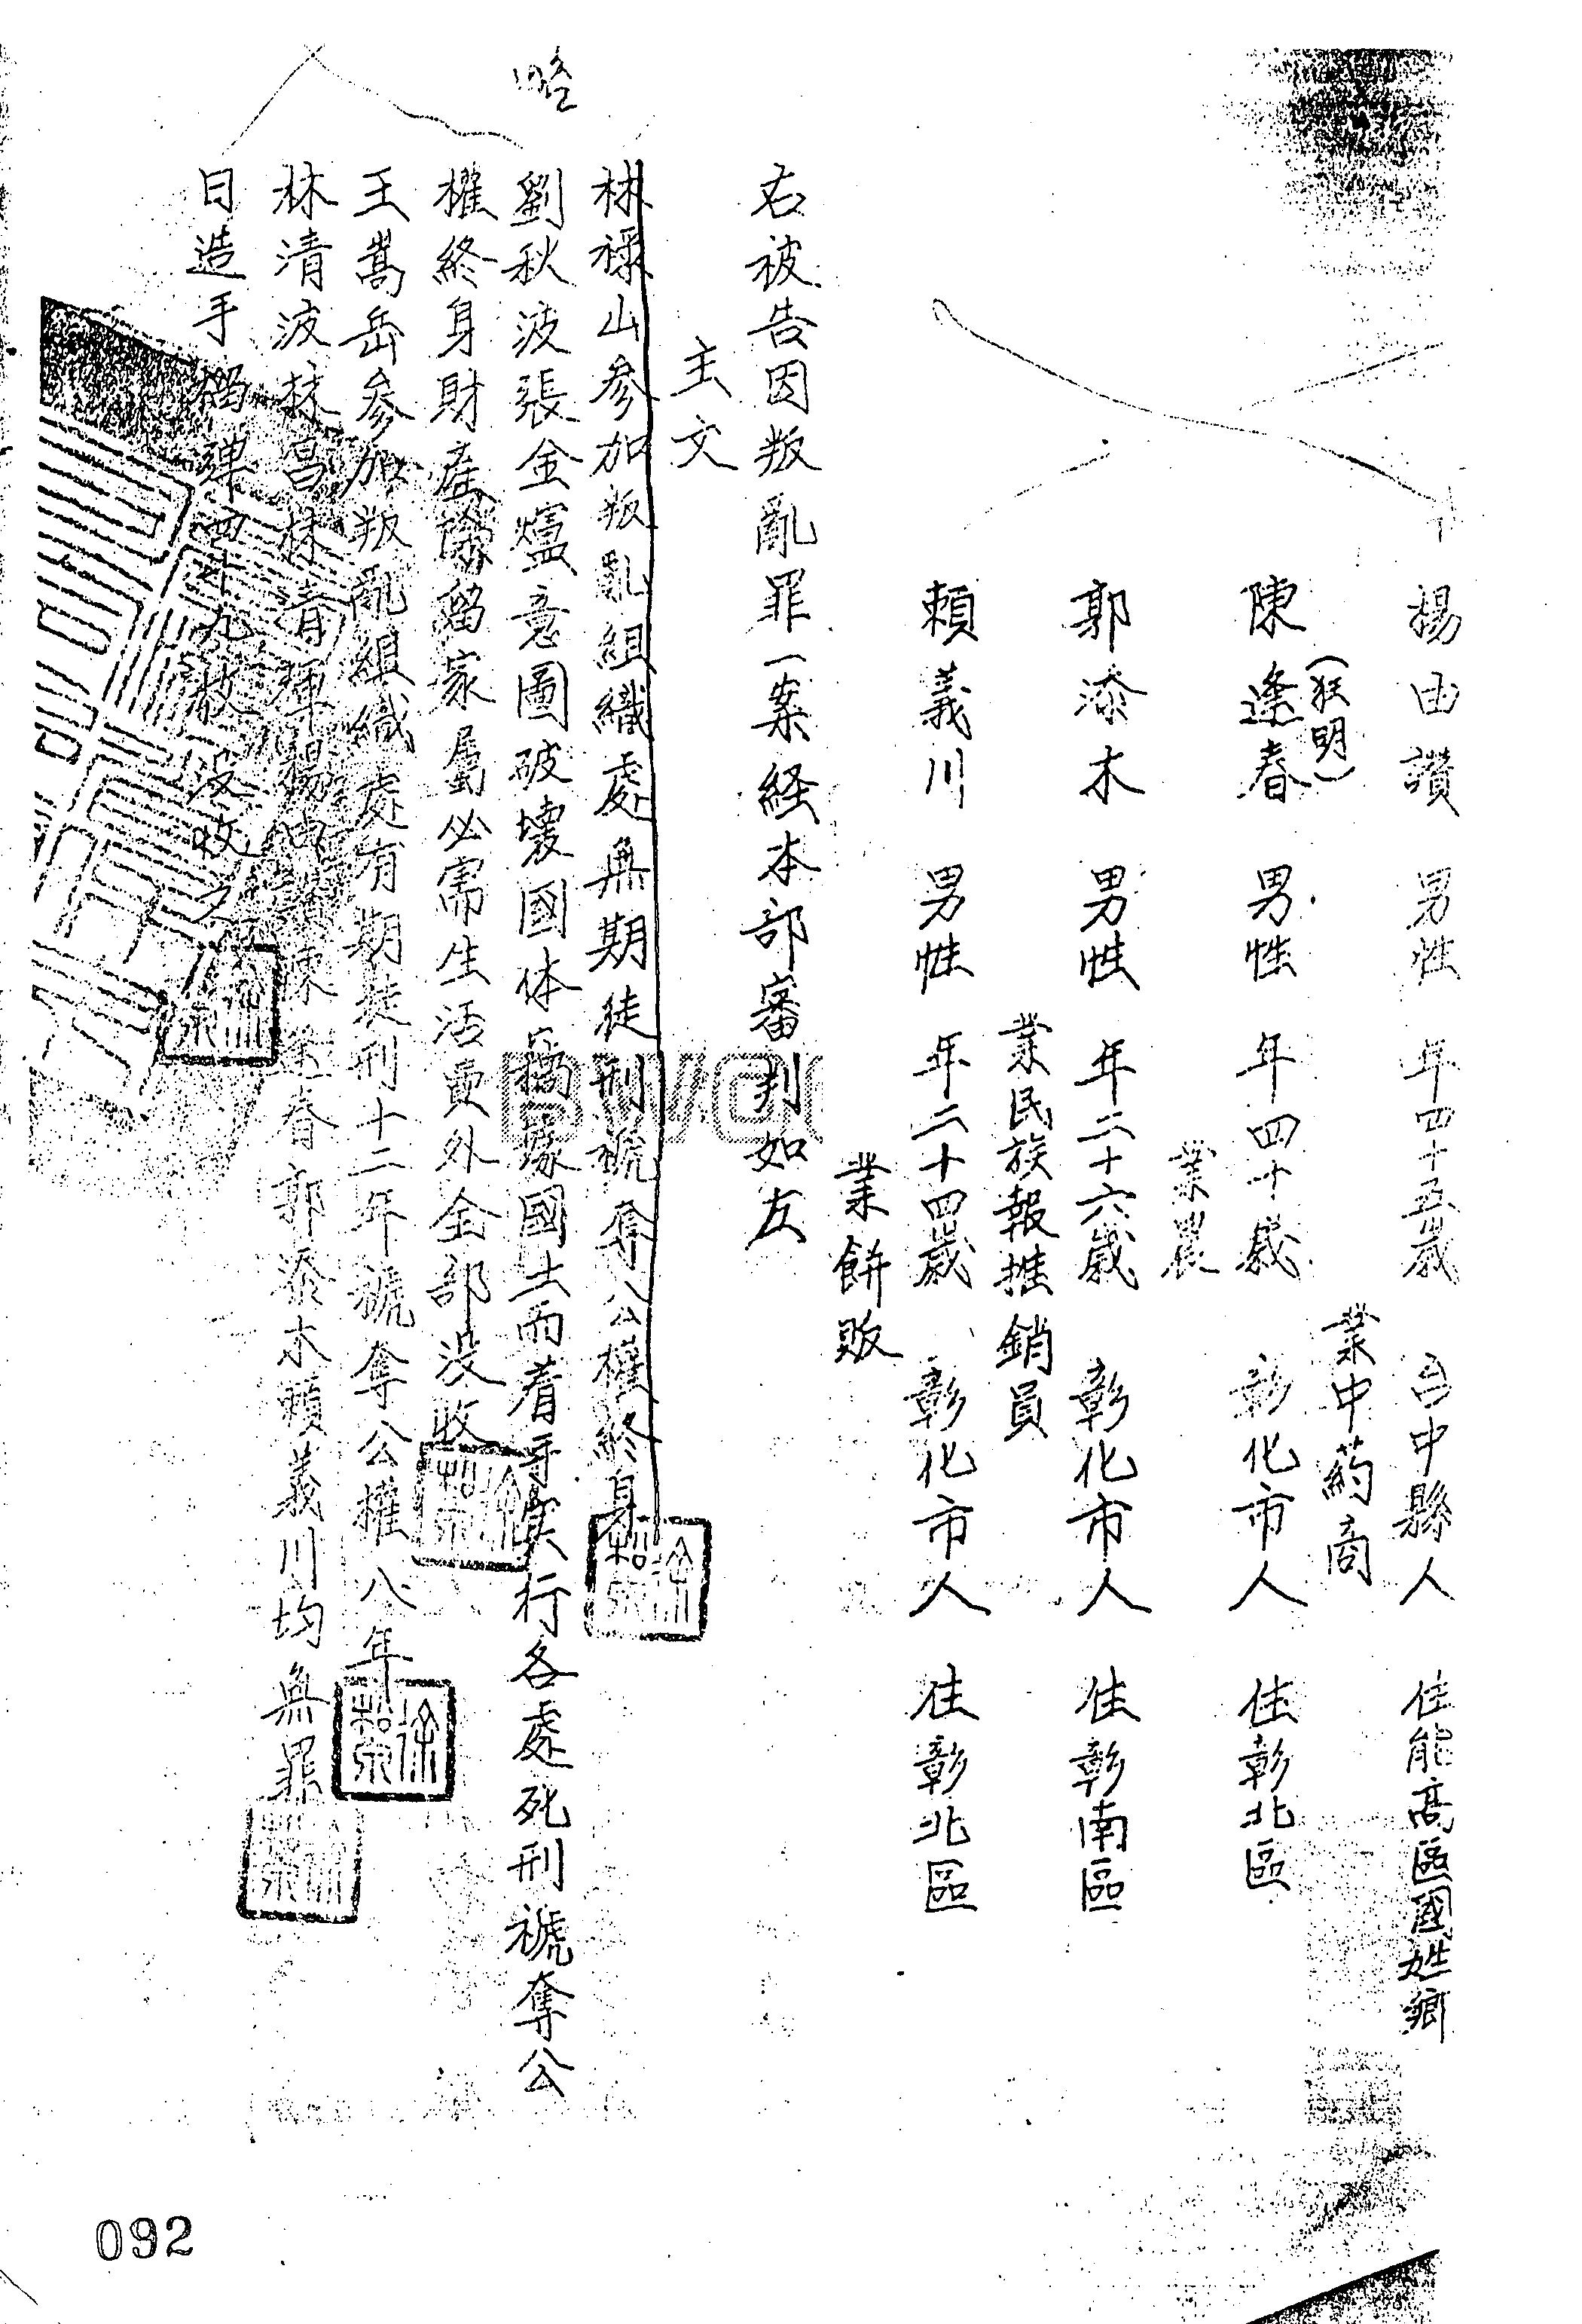 楊由讚 男性 年四十五歲 台中縣人 住能高區國姓鄉
業中葯商
陳逢春(狂明) 男性 年四十歲 彰化市人 住彰北區
業農
郭添木 男性 年二十六歲 彰化市人 住彰南區
業民族報推銷員
賴義川 男性 年二十四歲 彰化市人 住彰北區
業餅販
右被告因叛亂罪一案経本部審判如左
主文
林祿山參加叛亂組織處無期徒刑褫奪公權終身
劉秋波張金爐意圖破壞國体竊據國土而着手实行各處死刑褫奪公
權終身財產除留家屬必需生活費外全部没收
王嵩岳參加叛亂組織處有期徒刑十二年褫奪公權八年
林清波林昌林清輝楊由讚陳逢春郭添木賴義川均無罪
日造手榴彈四十九枚没收之
略
092